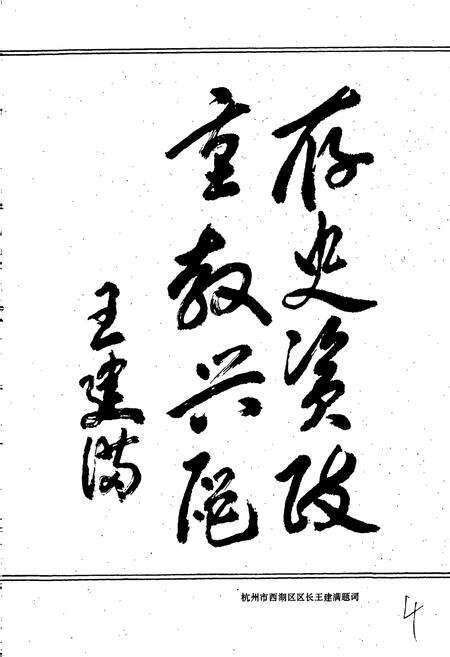 存史资政
重教兴区
王建满
杭州市西湖区区长王建满题词
4